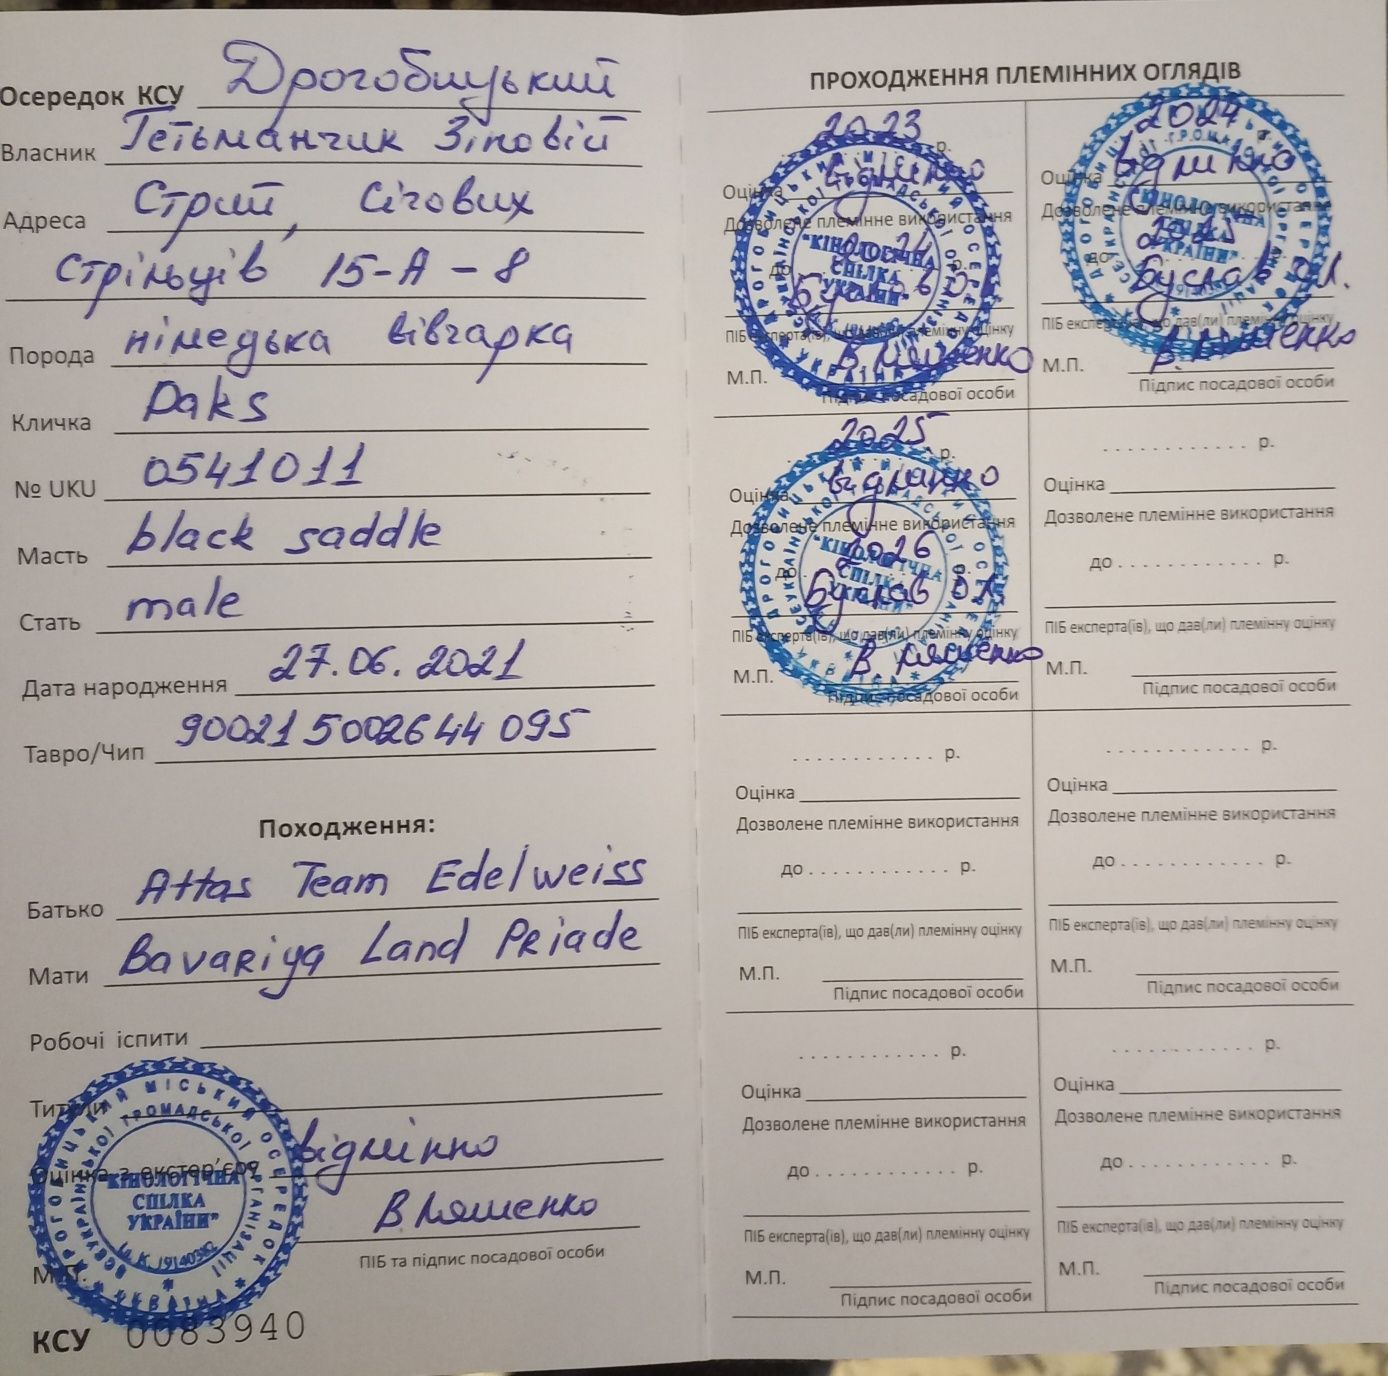 Осередок КСУ Дрогобицький
Власник Гетьманчик Зіновій
Адреса Стрий, Січових
Стрільців 15-А-8
Порода німецька вівчарка
Кличка Daks
№ UKU 0541011
Масть black saddle
Стать male
Дата народження 27.06.2021
Тавро/Чип 900215002644095
Походження:
Батько Attas Team Edelweiss
Мати Bavariya Land Priade
Робочі іспити
Титули
Оцінка з екстер'єру відмінно
В Ляшенко
ПІБ та підпис посадової особи
М.П.
ДРОГОБИЦЬКИЙ МІСЬКИЙ ОСЕРЕДОК * УКРАЇНА *
ВСЕУКРАЇНСЬКОЇ ГРОМАДСЬКОЇ ОРГАНІЗАЦІЇ
"КІНОЛОГІЧНА
СПІЛКА
УКРАЇНИ"
КСУ 0083940
ПРОХОДЖЕННЯ ПЛЕМІННИХ ОГЛЯДІВ
2023 р.
Оцінка відмінно
Дозволене племінне використання
до 2024 р.
Буслав О.Л.
ПІБ експерта(ів), що дав(ли) племінну оцінку
В Ляшенко
М.П.
Підпис посадової особи
2024
Оцінка відмінно
Дозволене племінне використання
до 2025
Буслав О.Л.
ПІБ експерта(ів), що дав(ли) племінну оцінку
М.П. В. Ляшенко
Підпис посадової особи
2025 р.
Оцінка відмінно
Дозволене племінне використання
до 2026 р.
Буслав О.Л.
ПІБ експерта(ів), що дав(ли) племінну оцінку
М.П. В Ляшенко
Підпис посадової особи
. . . . . . . . . . . р.
Оцінка
Дозволене племінне використання
до . . . . . . . . . . . р.
ПІБ експерта(ів), що дав(ли) племінну оцінку
М.П.
Підпис посадової особи
. . . . . . . . . . . р.
Оцінка
Дозволене племінне використання
до . . . . . . . . . . . р.
ПІБ експерта(ів), що дав(ли) племінну оцінку
М.П.
Підпис посадової особи
. . . . . . . . . . . р.
Оцінка
Дозволене племінне використання
до . . . . . . . . . . . р.
ПІБ експерта(ів), що дав(ли) племінну оцінку
М.П.
Підпис посадової особи
. . . . . . . . . . . р.
Оцінка
Дозволене племінне використання
до . . . . . . . . . . . р.
ПІБ експерта(ів), що дав(ли) племінну оцінку
М.П.
Підпис посадової особи
. . . . . . . . . . . р.
Оцінка
Дозволене племінне використання
до . . . . . . . . . . . р.
ПІБ експерта(ів), що дав(ли) племінну оцінку
М.П.
Підпис посадової особи